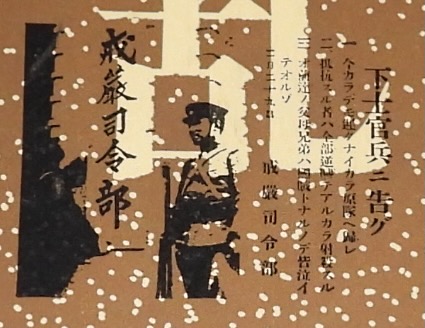 下士官兵ニ告グ
一、今カラデモ遅クナイカラ原隊ヘ歸レ
二、抵抗スル者ハ全部逆賊デアルカラ射殺スル
三、オ前達ノ父母兄弟ハ國賊トナルノデ皆泣イ
テオルゾ
二月二十九日　戒嚴司令部
戒嚴司令部